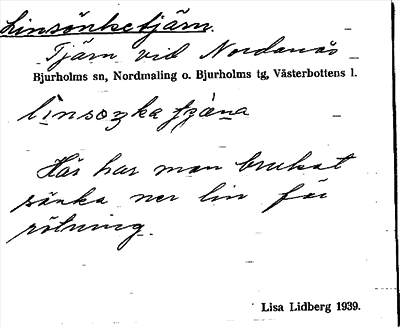 Linsänketjärn.
Tjärn vid Nordanås
Bjurholms sn, Nordmaling o. Bjurholms tg, Västerbottens l.
Här har man brukat
sänka ner lin för
rötning.
Lisa Lidberg 1939.